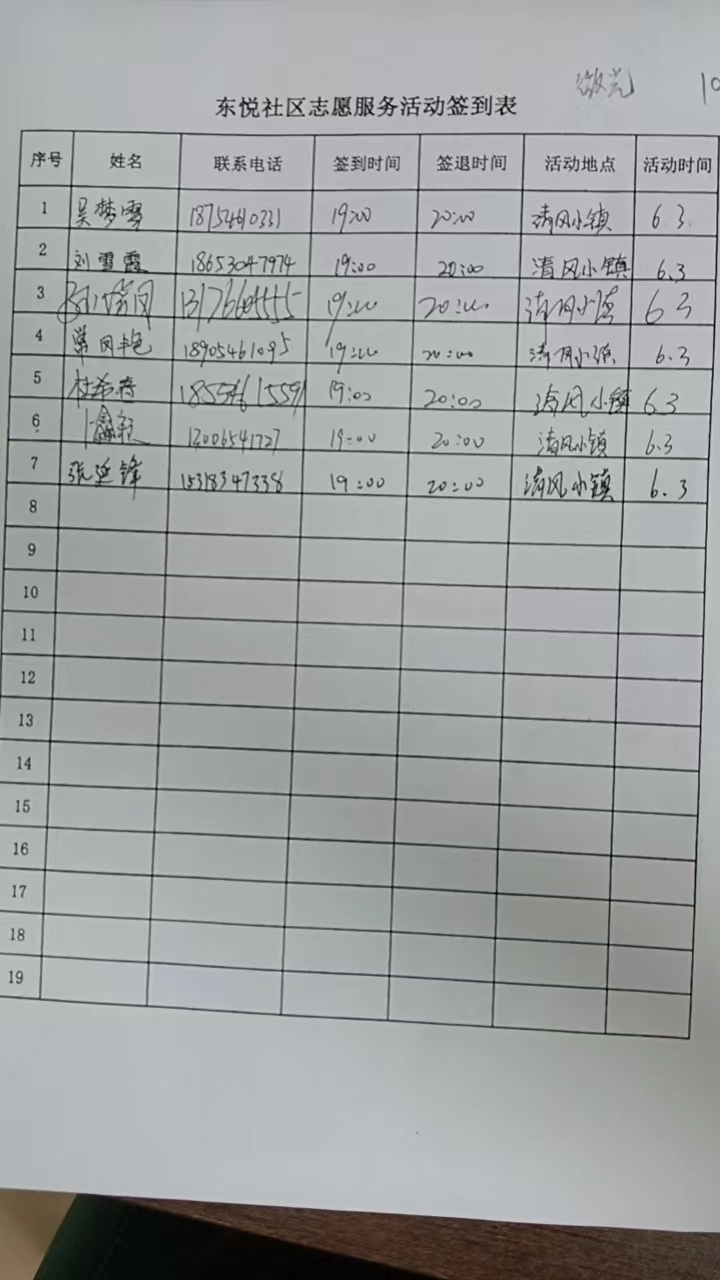 微光 10
东悦社区志愿服务活动签到表
序号 姓名 联系电话 签到时间 签退时间 活动地点 活动时间
1 吴梦雪 19:00 20:00 清风小镇 6 3
2 刘雪霞 18653047974 19:00 20:00 清风小镇 6.3
3 19:00 20:00 清风小镇 6 3
4 18905461095 19:00 20:00 清风小镇 6.3
5 杜希春 19:00 20:00 清风小镇 6.3
6 19:00 20:00 清风小镇 6.3
7 张延锋 15318347338 19:00 20:00 清风小镇 6.3
8
9
10
11
12
13
14
15
16
17
18
19